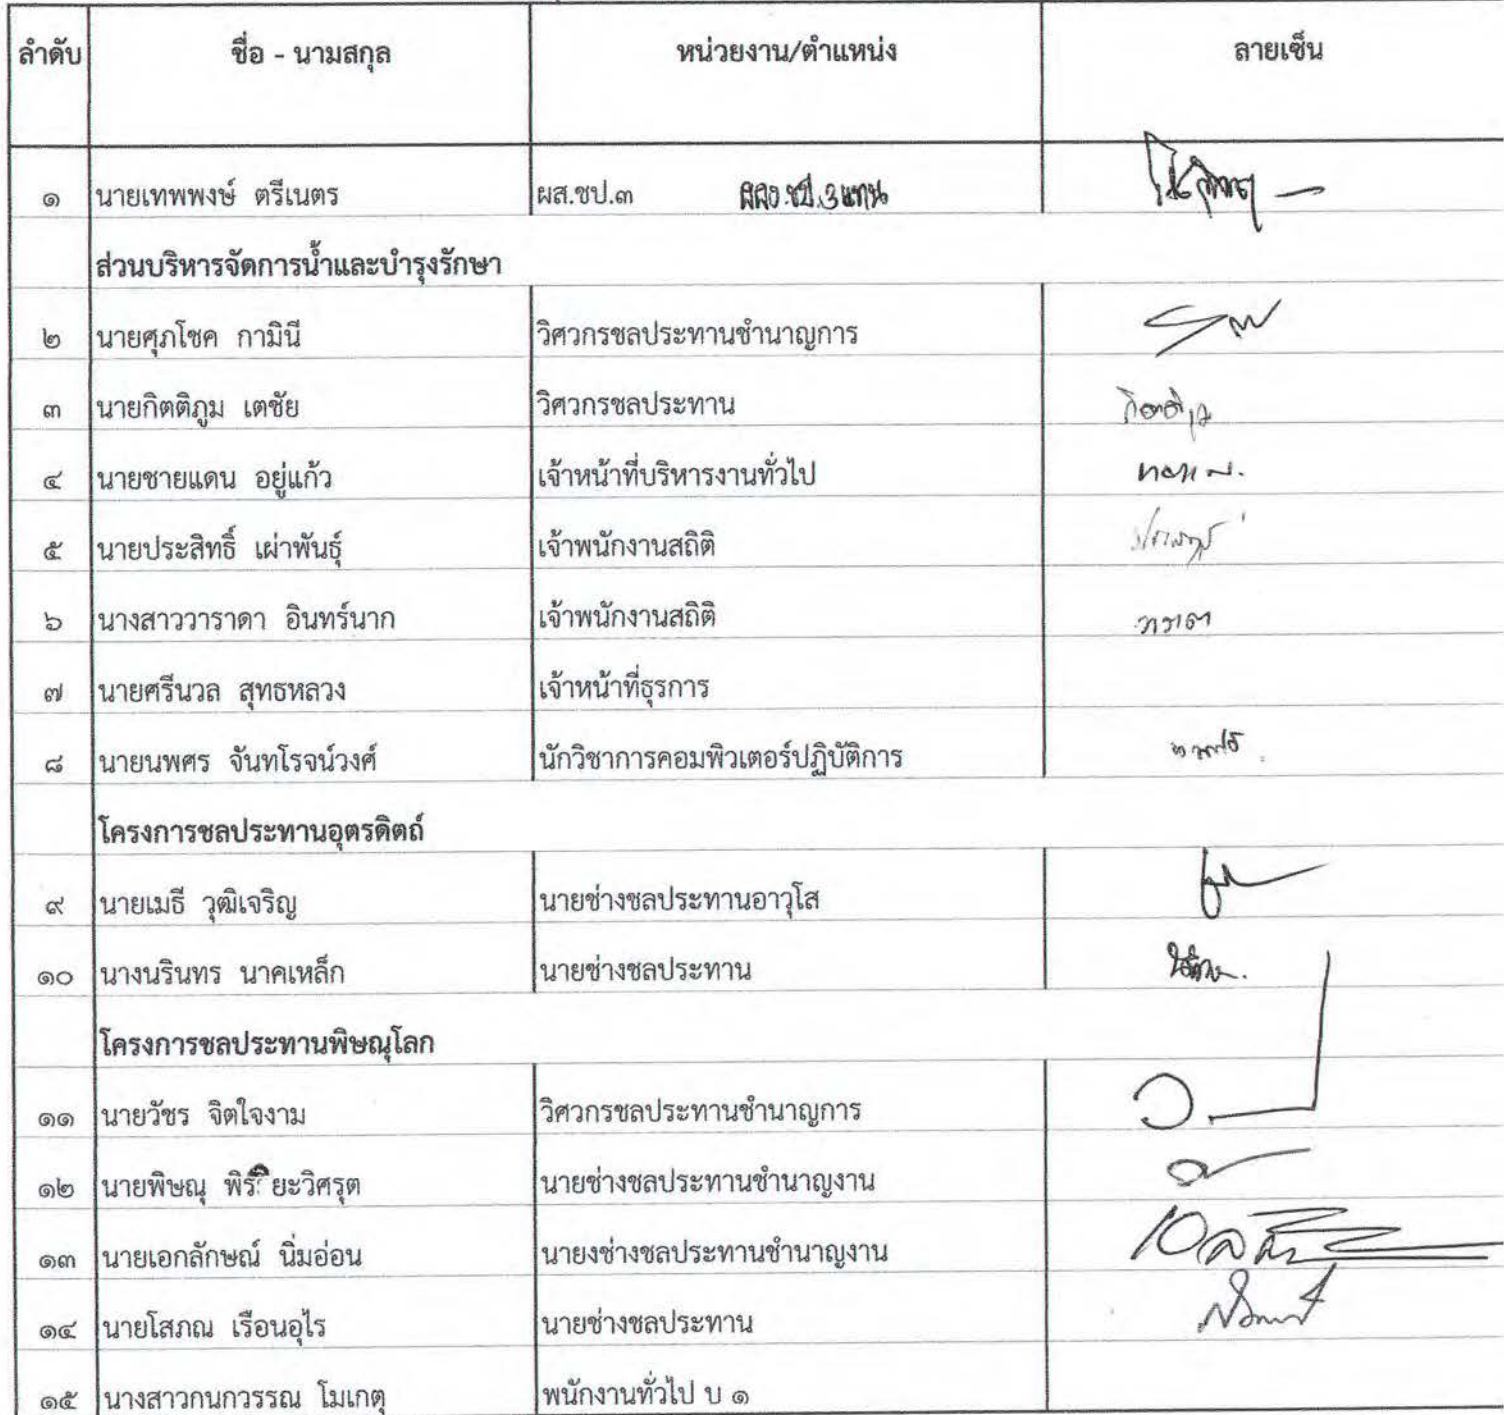 ลำดับ ชื่อ - นามสกุล หน่วยงาน/ตำแหน่ง ลายเซ็น
๑ นายเทพพงษ์ ตรีเนตร ผส.ชป.๓ ผคง.ชป.3 แทน
ส่วนบริหารจัดการน้ำและบำรุงรักษา
๒ นายศุภโชค กามินี วิศวกรชลประทานชำนาญการ
๓ นายกิตติภูม เตชัย วิศวกรชลประทาน
๔ นายชายแดน อยู่แก้ว เจ้าหน้าที่บริหารงานทั่วไป
๕ นายประสิทธิ์ เผ่าพันธุ์ เจ้าพนักงานสถิติ
๖ นางสาววาราดา อินทร์นาก เจ้าพนักงานสถิติ
๗ นายศรีนวล สุทธหลวง เจ้าหน้าที่ธุรการ
๘ นายนพศร จันทโรจน์วงศ์ นักวิชาการคอมพิวเตอร์ปฏิบัติการ
โครงการชลประทานอุตรดิตถ์
๙ นายเมธี วุฒิเจริญ นายช่างชลประทานอาวุโส
๑๐ นางนรินทร นาคเหล็ก นายช่างชลประทาน
โครงการชลประทานพิษณุโลก
๑๑ นายวัชร จิตใจงาม วิศวกรชลประทานชำนาญการ
๑๒ นายพิษณุ พิริยะวิศรุต นายช่างชลประทานชำนาญงาน
๑๓ นายเอกลักษณ์ นิ่มอ่อน นายงช่างชลประทานชำนาญงาน
๑๔ นายโสภณ เรือนอุไร นายช่างชลประทาน
๑๕ นางสาวกนกวรรณ โมเกตุ พนักงานทั่วไป บ ๑